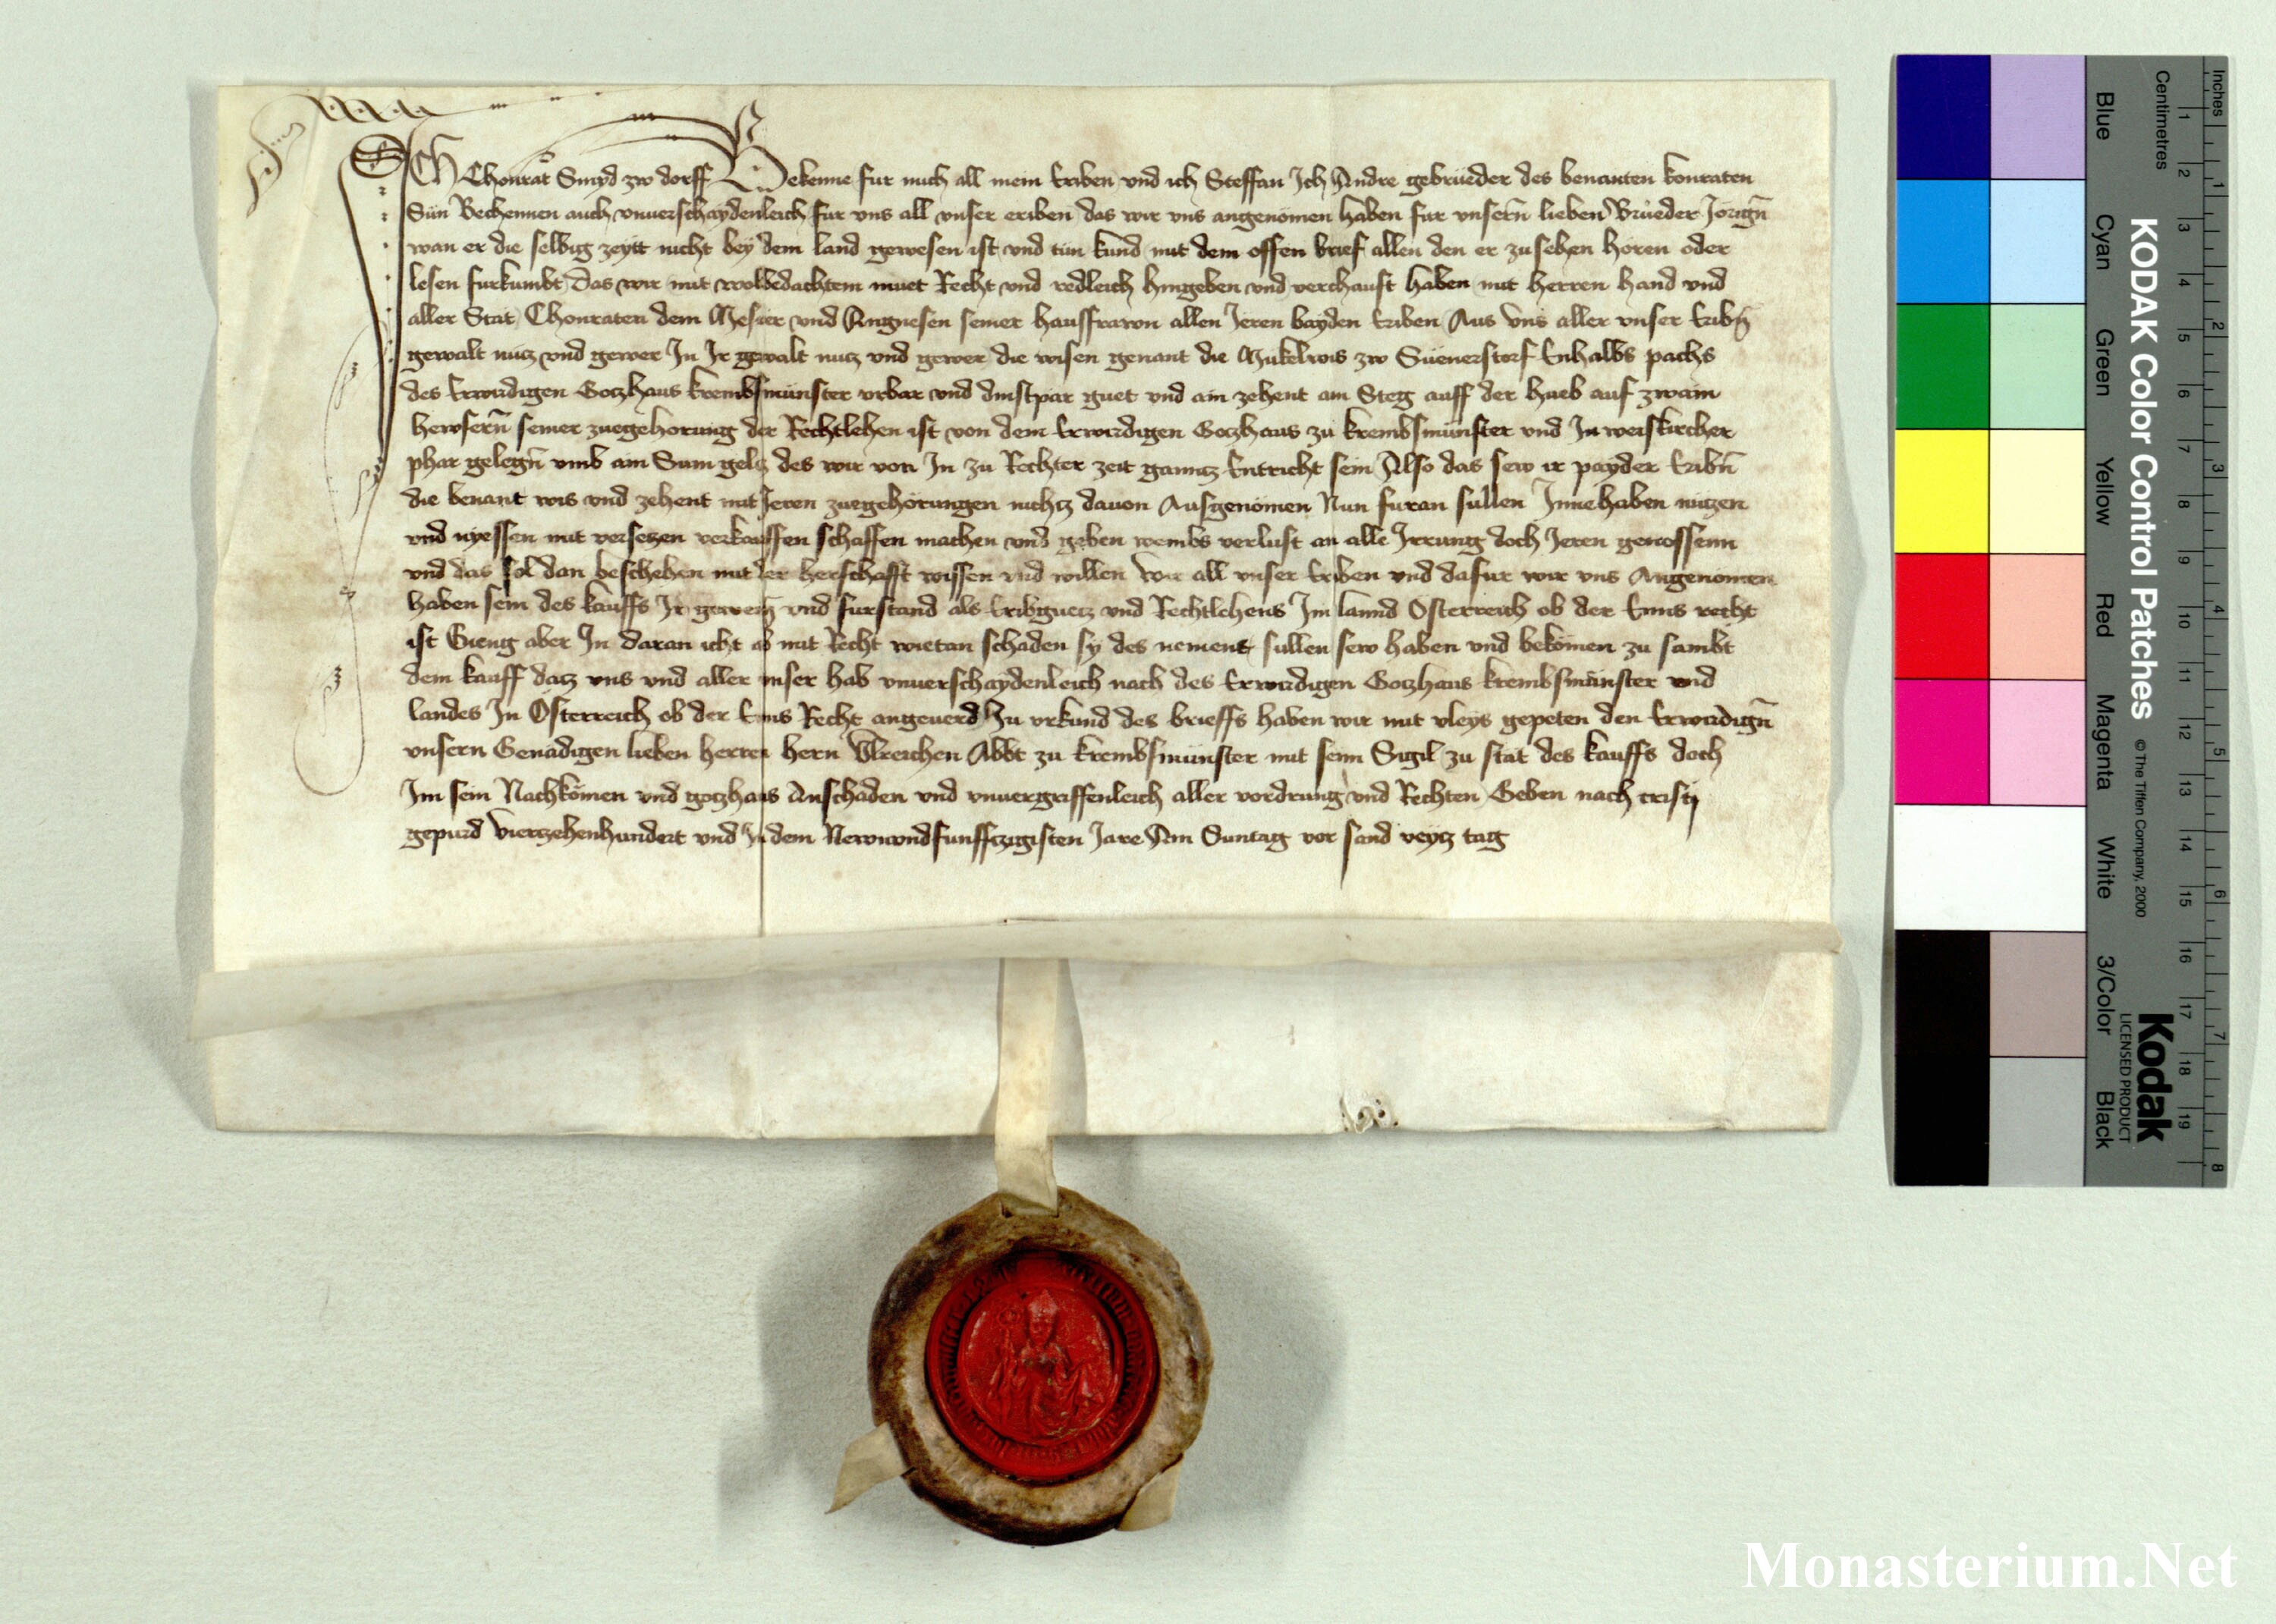 Ich Chonrat Smyd zw dorff Bekenne fur mich all mein Eriben vnd ich Steffan Ich Andre gebrüeder des benanten konraten
Sün Bechennen auch vnuerschaydenleich fur vns all vnser eriben das wir vns angenömen haben fur vnsern̄ lieben Brüeder Jörign̄
wan er die selbig zeytt nicht bey dem land gewesen ist vnd tün kund mit dem offen brief allen den er zu sehen hören oder
lesen furkumbt Das wir mit wolbedachtem muet Recht vnd redleich hingeben vnd verchauft haben mit herren hand vnd
aller Stat Chonraten dem Mesner vnd Angnesen seiner hauffrawn allen Jeren bayden Eriben Aus vns aller vnser Eribn̄
gewalt nütz vnd gewer In Ir gewalt nutz vnd gewer die wisen genant die Mukelwis zw Süenerstorf Enhalbs pachs
des Erwirdigen Gotzhaus krembsmünster vrbar vnd dinstpar guet vnd ain zehent am Steg auff der hueb auf zwain
hewsern̄ seiner zuegehorung der Rechtlehen ist von dem Erwirdigen Gotzhaus zu krembsmünster vnd In weiskircher
phar gelegn̄ vmb ain Sum geltz des wir von In zu Rechter zeit ganntz Entricht sein Also das sew ir payder Eribn̄
die benant wis vnd zehent mit Jeren zuegehörungen nichtz dauon Ausgenömen Nun furan sullen Innehaben nützen
vnd nyessen mit versetzen verkauffen schaffen machen vnd geben wembs verlust an alle Irrung doch Jeren genossenn
vnd das sol dan beschehen mit der herschafft wissen vnd willen Wir all vnser Eriben vnd dafur wir vns Angenomen
haben sein des kauffs Ir gewern̄ vnd furstand als Eribguetz vnd Rechtlehens Im lannd Osterreich ob der Enns recht
ist Gieng aber In daran icht ab mit Recht wietan schaden sy des nement sullen sew haben vnd bekömen zu sambt
dem kauff datz vns vnd aller vnser hab vnuerschaydenleich nach des Erwirdigen Gotzhaus krembsmünster vnd
landes In Österreich ob der Enns Recht angeuerd Zu vrkund des brieffs haben wir mit vleys gepeten den Erwirdign̄
vnsern Genädigen lieben herren hern Vlreichen Abbt zu krembsmünster mit seim Sigil zu stät des kauffs doch
Im sein Nachkömen vnd gotzhaus Anschaden vnd vnuergriffenleich aller vordrung vnd Rechten Geben nach cristi
gepurd vierzehenhundert vnd In dem Newnvndfunffczigisten Jare Am Suntag vor sand veytz tag
KODAK Color Control Patches © The Tiffen Company, 2000
Kodak
LICENSED PRODUCT
Blue Cyan Green Yellow Red Magenta White 3/Color Black
Centimetres 1 2 3 4 5 6 7 8 9 10 11 12 13 14 15 16 17 18 19
Inches 1 2 3 4 5 6 7 8
Monasterium.Net